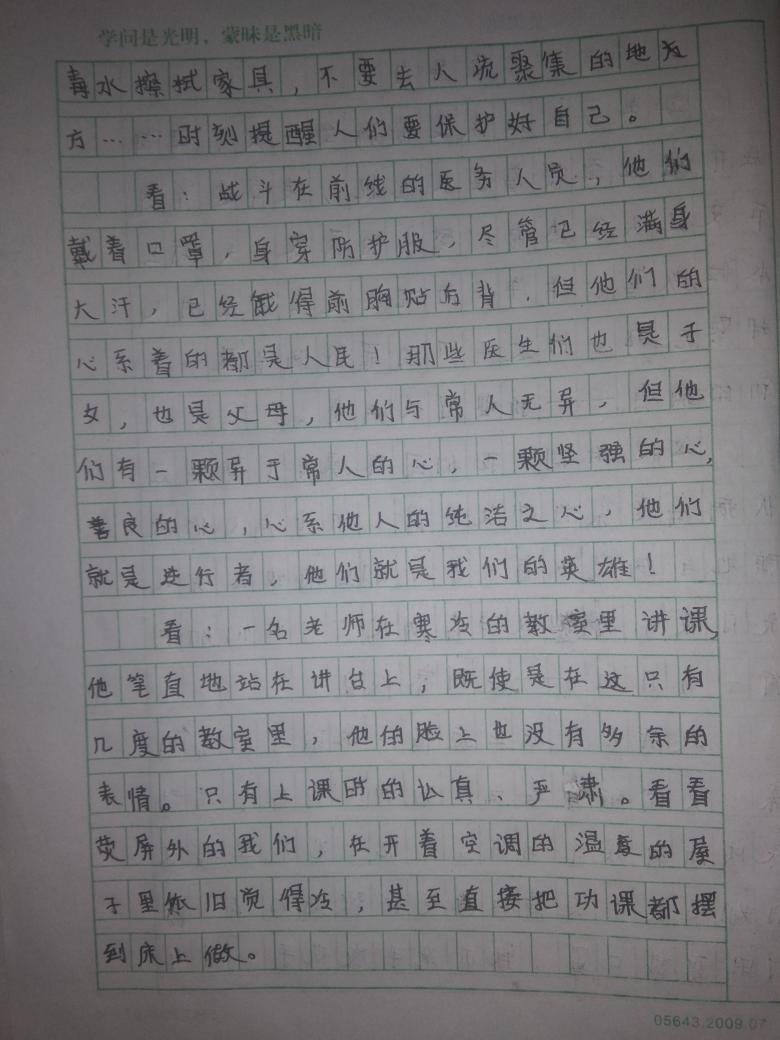 学问是光明，蒙昧是黑暗
毒水擦拭家具，不要去人流聚集的地方
方……时刻提醒人们要保护好自己。
看：战斗在前线的医务人员，他们
戴着口罩，身穿防护服，尽管已经满身
大汗，已经饿得前胸贴后背，但他们的
心系着的都是人民！那些医生们也是子
女，也是父母，他们与常人无异，但他
们有一颗异于常人的心，一颗坚强的心，
善良的心，心系他人的纯洁之心，他们
就是逆行者，他们就是我们的英雄！
看：一名老师在寒冷的教室里讲课，
他笔直地站在讲台上，既使是在这只有
几度的教室里，他的脸上也没有多余的
表情。只有上课时的认真、严肃。看看
荧屏外的我们，在开着空调的温度的屋
子里依旧觉得冷，甚至直接把功课都摆
到床上做。
05643.2009.07